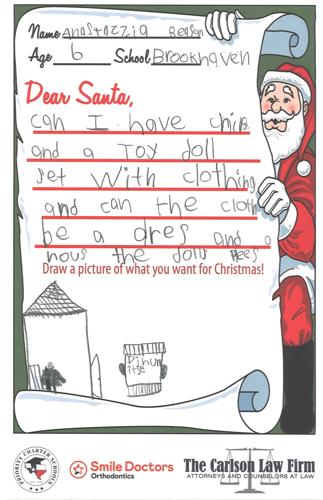 Name Anastazzia Reason
Age 6 School Brookhaven
Dear Santa,
can I have chips
and a Toy doll
set with clothing
and can the cloth
be a dres and a
hous the dolls
Draw a picture of what you want for Christmas!
PRIORITY CHARTER SCHOOLS
Smile Doctors
Orthodontics
The Carlson Law Firm
ATTORNEYS AND COUNSELORS AT LAW